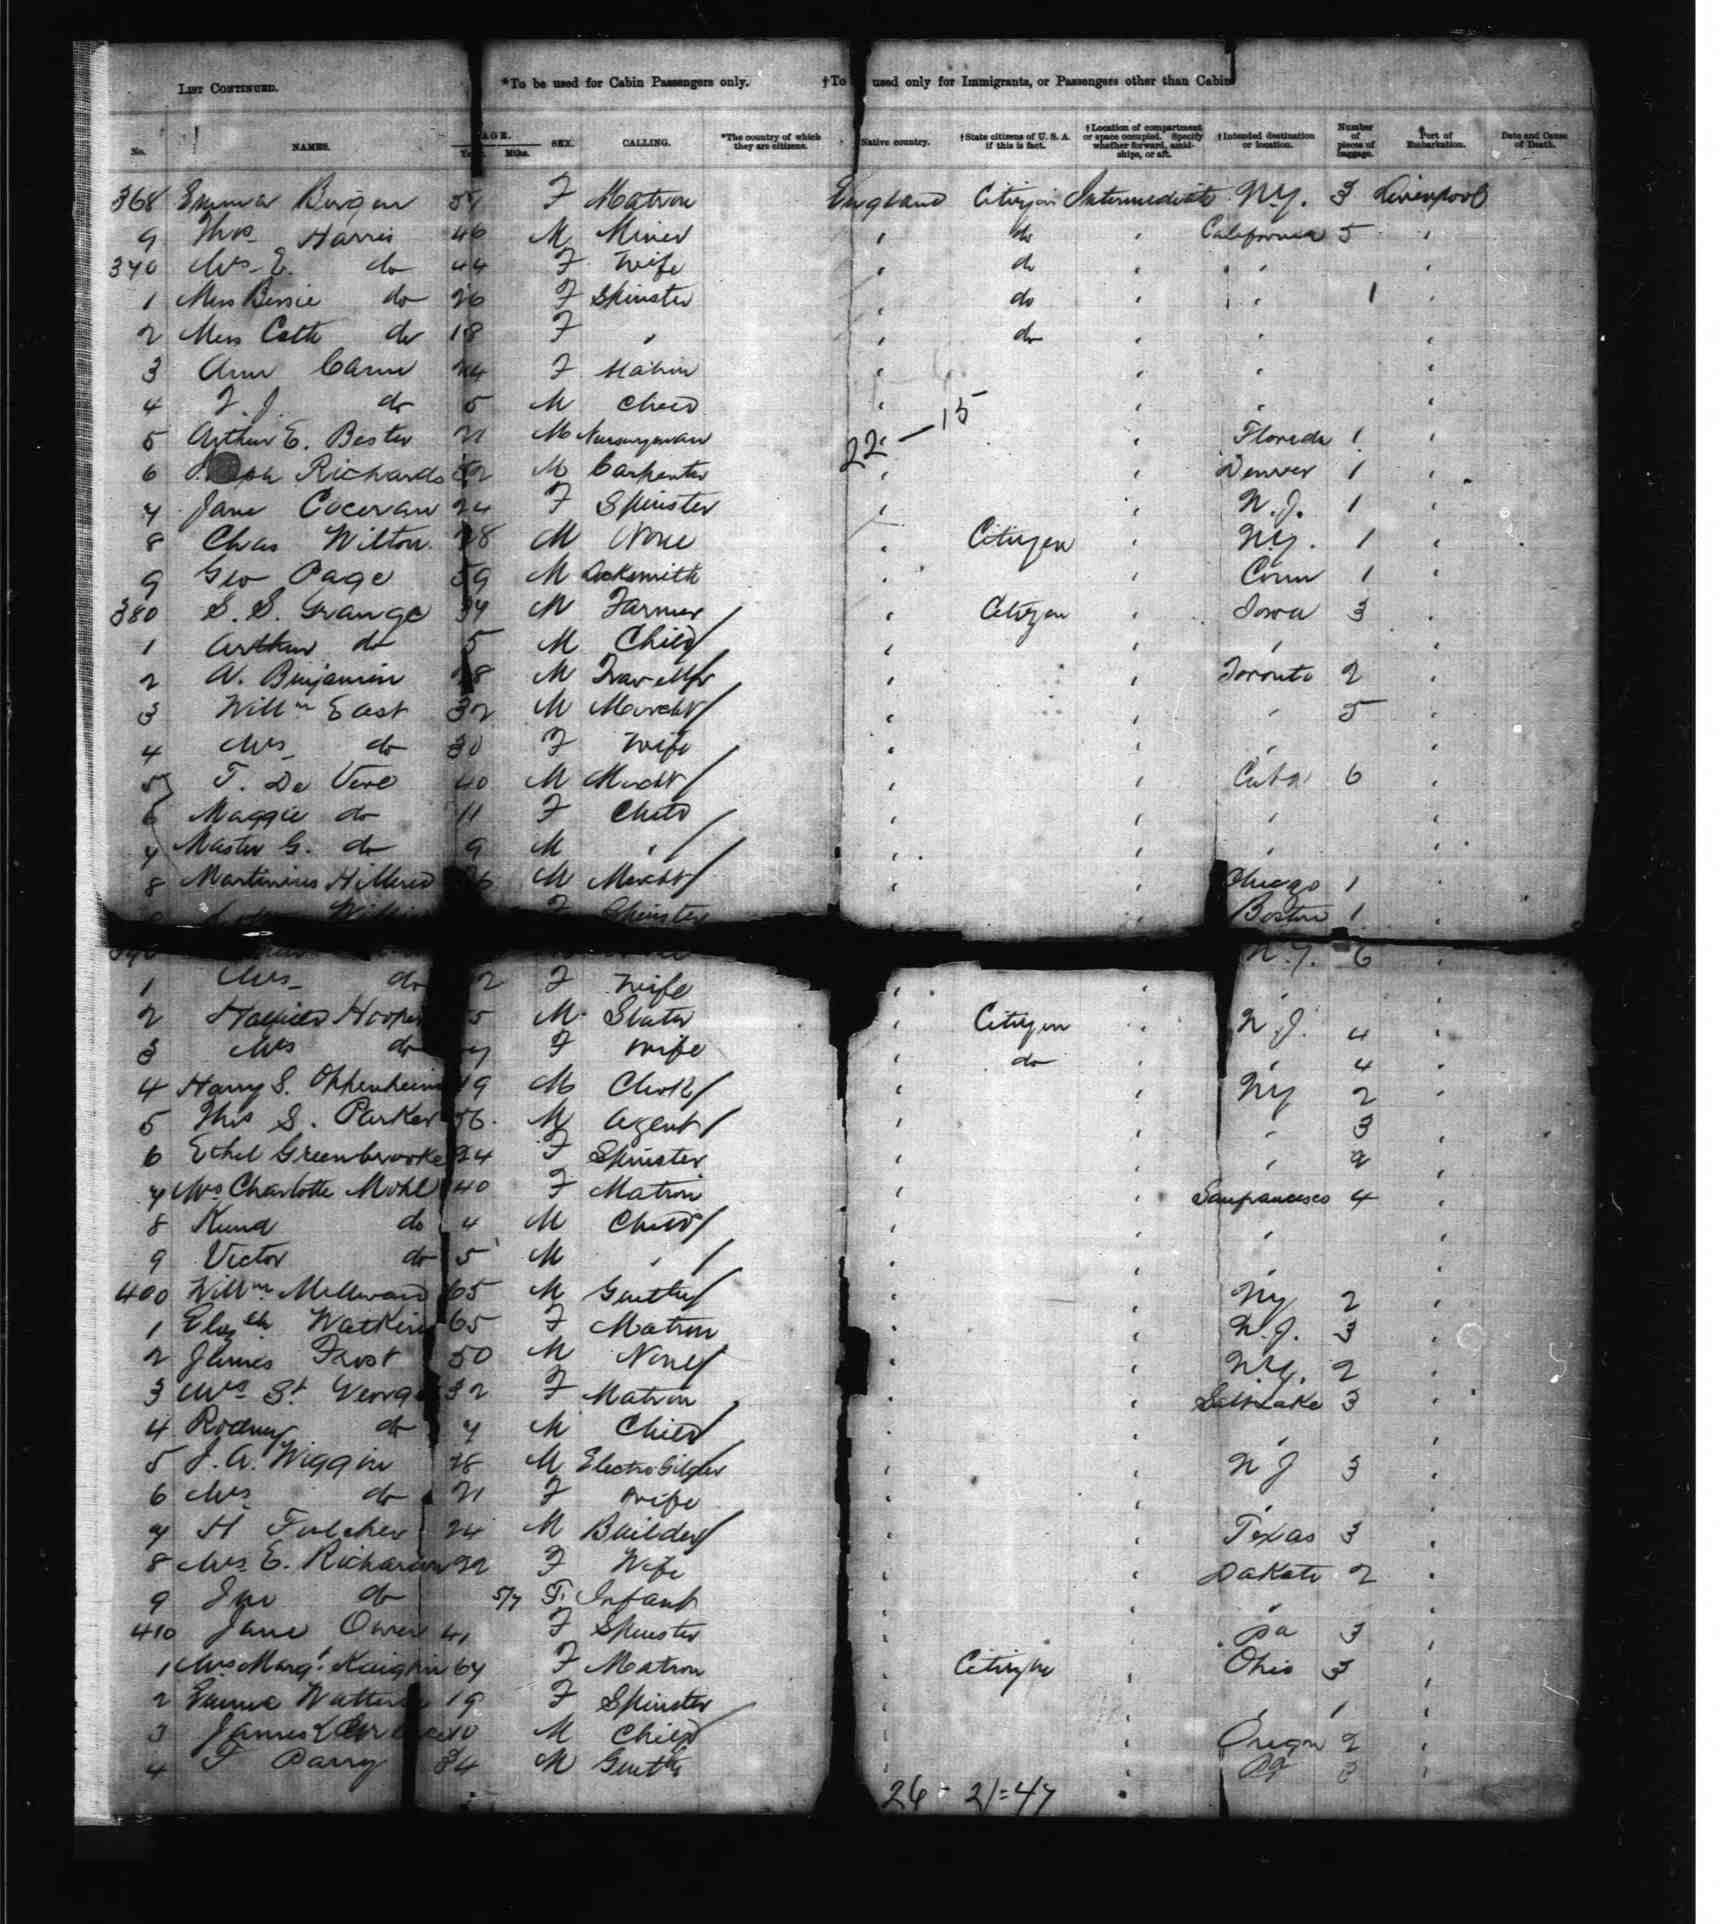 LIST CONTINUED. *To be used for Cabin Passengers only. †To used only for Immigrants, or Passengers other than Cabin
No. NAMES. AGE. Mths. SEX. CALLING. *The country of which they are citizens. Native country. †State citizens of U. S. A. if this is fact. †Location of compartment or space occupied. Specify whether forward, amidships, or aft. †Intended destination or location. Number of pieces of baggage. Port of Embarkation. Date and Cause of Death.
368 Emma F Matron England Citizen Intermediate N.Y. 3 Liverpool
9 Thos Harris 46 M Miner " do " California 5 "
370 Mrs E. do 44 F Wife " do " " "
1 Miss Bessie do 26 F Spinster " do " " 1 "
2 Miss Cath do 18 F " " do " " "
3 Ann 24 F Matron " " " "
4 do 5 M Child " " "
22 — 15
5 Arthur E. Bester 21 M Nurseryman " Florida 1 "
6 Richards M Carpenter " " Denver 1 "
7 Jane 24 F Spinster " " N.J. 1 "
8 Chas Wilton 28 M None " Citizen " N.Y. 1 "
9 Geo Page 59 M Locksmith " " Conn 1 "
380 S. S. Grange M Farmer " Citizen " Iowa 3 "
1 Arthur do 5 M Child " " " "
2 A. Benjamin 28 M Traveller " " Toronto 2 "
3 Willm East 32 M Mercht " " " 5 "
4 Mrs do 30 F Wife " " " "
5 T. De Vere 40 M Mercht " " Cuba 6 "
6 Maggie do 11 F Child " " " "
7 Master G. do 9 M " " " " "
8 Martinius M Mercht " " Chicago 1 "
F Spinster " " Boston 1 "
N.Y. 6 "
1 Mrs do 2 F Wife " " " "
2 Hooper 5 M Slater " Citizen " N.J. 4 "
3 Mrs do 7 F Wife " do " " 4 "
4 Harry S. Oppenheim 19 M Clerk " " N.Y. 2 "
5 Thos S. Parker 56 M Agent " " " 3 "
6 Ethel Greenbrooke 24 F Spinster " " " 2 "
7 Mrs Charlotte Mohl 40 F Matron " " Sanfrancisco 4 "
8 Kund do 4 M Child " " " "
9 Victor do 5 M " " " " "
400 Willm Millward 65 M Gentln " " N.Y. 2 "
1 Elizth Watkins 65 F Matron " " N.J. 3 "
2 James Frost 50 M None " " N.Y. 2 "
3 Mrs St. George 32 F Matron " " Salt Lake 3 "
4 Rodney do 7 M Child " " " "
5 J. A. Wiggin 28 M Electro Gilder " " N J 3 "
6 Mrs do 21 F Wife " " " "
7 H Fulcher 24 M Builder " " Texas 3 "
8 Mrs E. Richards 22 F Wife " " Dakota 2 "
9 do F. Infant " " " "
410 Jane Owen 41 F Spinster " " Pa 3 "
1 Mrs Margt 67 F Matron " Citizen " Ohio 3 "
2 Emma 19 F Spinster " " " 1 "
3 James 10 M Child " " Oregon 2 "
4 F Parry 34 M Gentln " " Pa "
26 - 21=47